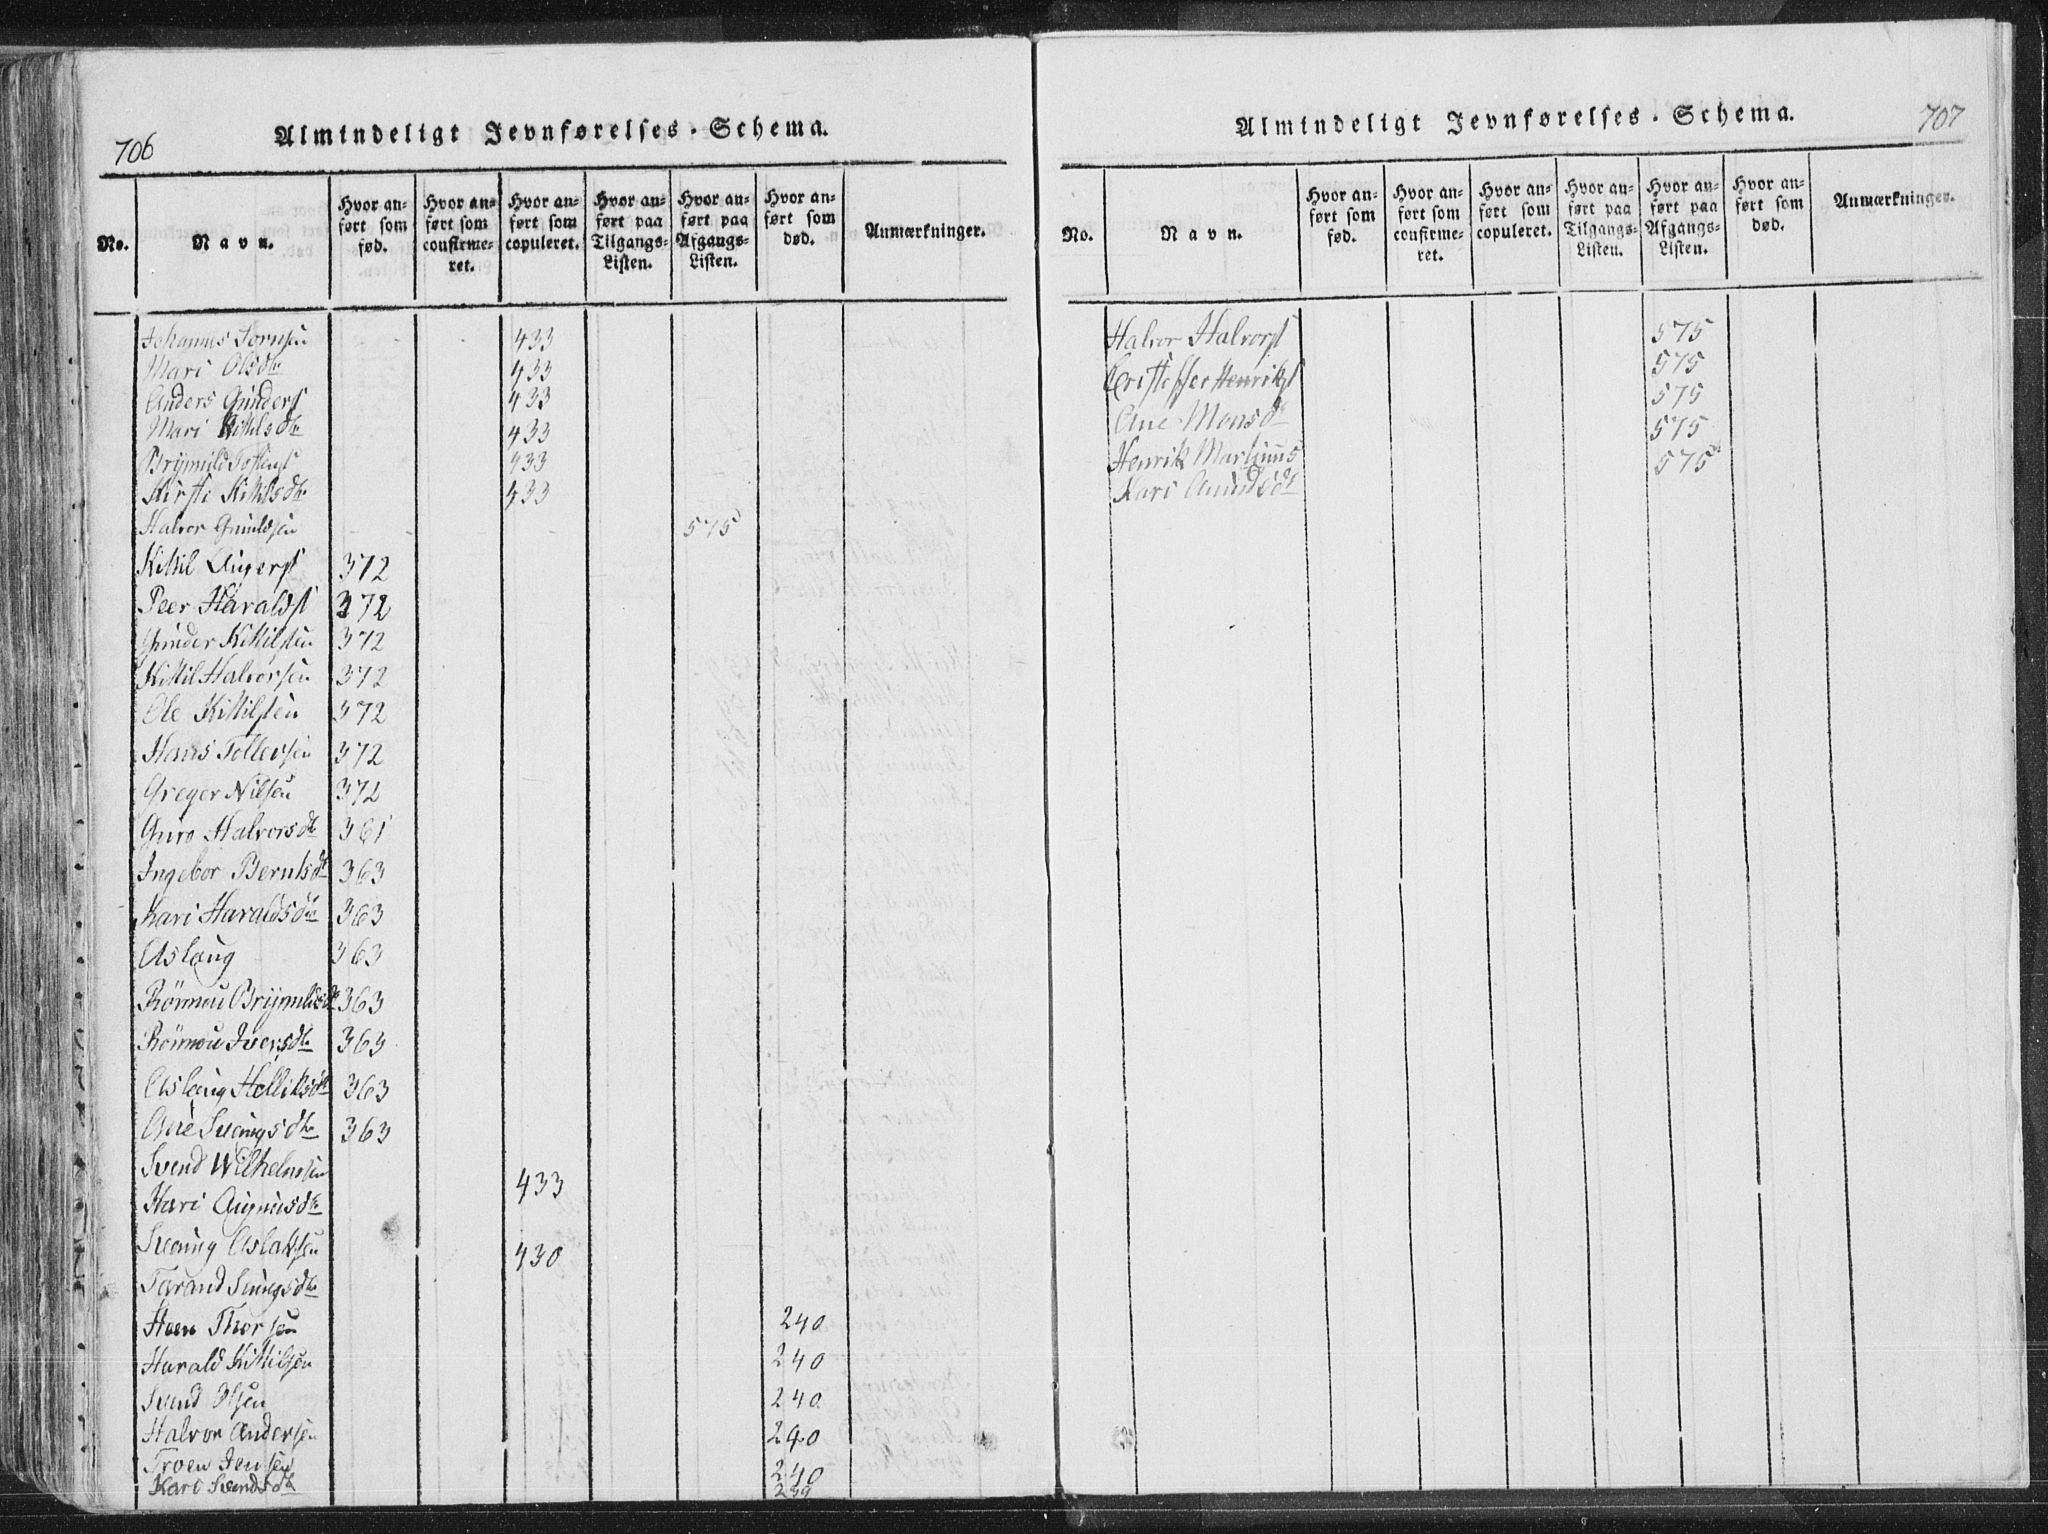 706
Almindeligt Jevnførelses-Schema.
No.
Navn.
Hvor anført som fød.
Hvor anført som confirmeret.
Hvor anført som copuleret.
Hvor anført paa Tilgangs-Listen.
Hvor anført paa Afgangs-Listen.
Hvor anført som død.
Anmærkninger.
Johannes 433
Mari Olsdtr 433
Anders Gunders 433
Mari Kittilsdtr 433
Brynnild 433
Kirsti Kittilsdtr 433
Halvor 575
Kittil 372
Peer Haralds 372
Gunder Kittilsen 372
Kittil Halvorsen 372
Ole Kittilsen 372
Hans Tollevsen 372
Greger Nilsen 372
Guro Halvorsdtr 361
Ingebor Berntsdt 363
Kari Haraldsdtr 363
Aslaug 363
Rönnou Brynnildsdt 363
Rönnou Iversdtr 363
Aslaug Helliksdt 363
Ane Svenungsdtr 363
Svend Wilhelmsen 433
Kari
Svenung Aslaksen 430
Tarand
Thorsen 240
Harald Kittilsen 240
Svend Olsen 240
Halvor Andersen 240
Troen Jensen 240
Kari Svendsdt
707
Almindeligt Jevnførelses-Schema.
No.
Navn.
Hvor anført som fød.
Hvor anført som confirmeret.
Hvor anført som copuleret.
Hvor anført paa Tilgangs-Listen.
Hvor anført paa Afgangs-Listen.
Hvor anført som død.
Anmærkninger.
Halvor Halvors 575
Cristoffer Henriks 575
Ane Monsdt 575
Henrik Martinus 575
Kari Amundsdt 575